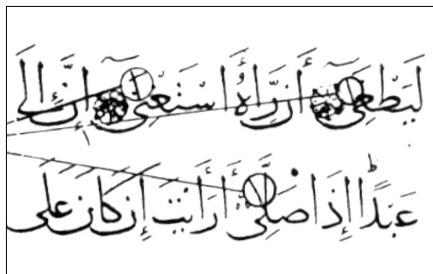 لَيَطْغَىٓ أَن رَّأَهُ اسْتَغْنَىٓ إِنَّ إِلَى
عَبْدًا إِذَا صَلَّىٓ أَرَأَيْتَ إِن كَانَ عَلَى